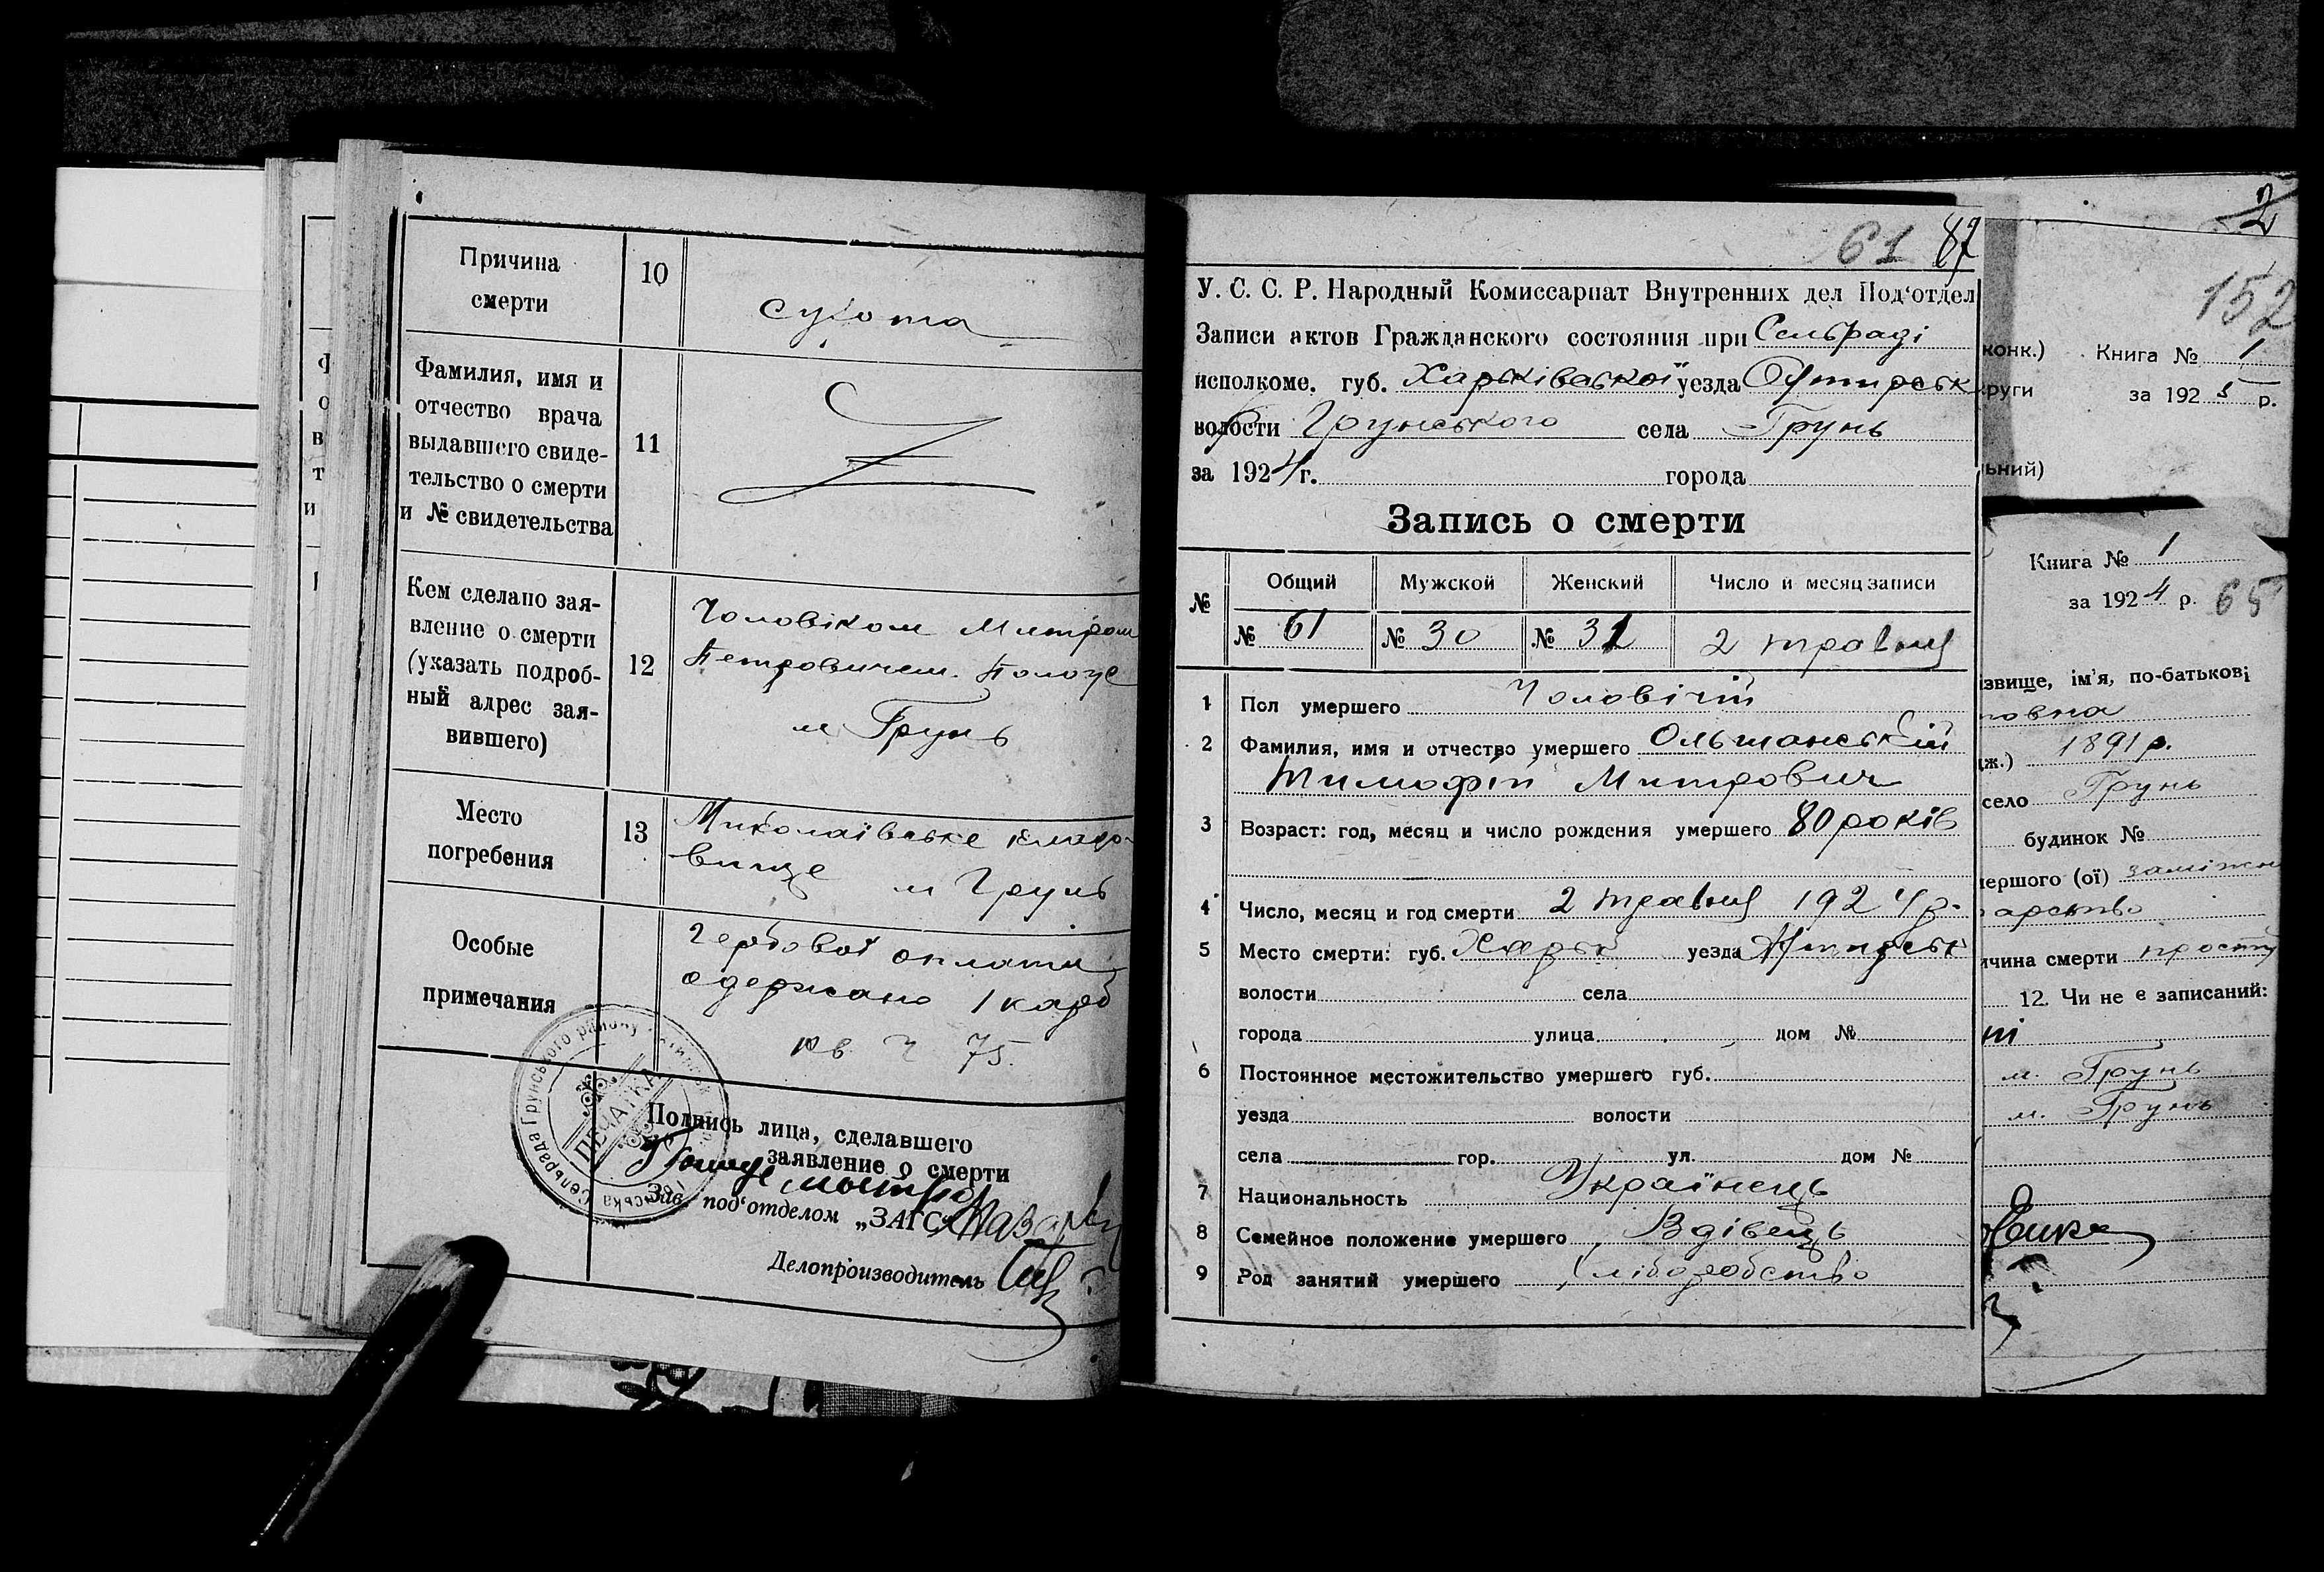 Причина
смерти
10
сухота
Фамилия, имя и
отчество врача
выдавшего свиде-
тельство о смерти
и № свидетельства
11
Кем сделано зая-
вление о смерти
(указать подроб-
ный адрес зая-
вившего)
12
Чоловіком Митром
Петровичем
м Грунь
Место
погребения
13
Миколаївське кладо-
вище м Грунь
Особые
примечания
гербової оплати
одержано 1 карб
кв Ч 75.
ПЕЧАТКА
Подпись лица, сделавшего
заявление о смерти
Зав. под'отделом „ЗАГС“
Делопроизводитель
61 87
У. С. С. Р. Народный Комиссариат Внутренних дел Под'отдел
Записи актов Гражданского состояния при Сельраді
исполкоме. губ. Харьківської уезда Охтирськ
волости Грунського села Грунь
за 1924 г. города
Запись о смерти
№ Общий Мужской Женский Число и месяц записи
№ 61 № 30 № 31 2 травня
1 Пол умершего Чоловічій
2 Фамилия, имя и отчество умершего Ольшанській
Тимофій Митрович
3 Возраст: год, месяц и число рождения умершего 80 років
4 Число, месяц и год смерти 2 травня 1924 р.
5 Место смерти: губ. Харьк уезда Охтирськ
волости села
города улица дом №
6 Постоянное местожительство умершего губ.
уезда волости
села гор. ул. дом №
7 Национальность Українець
8 Семейное положение умершего Вдівець
9 Род занятий умершего Хліборобство
2
152
конк.) Книга № 1
руги за 1925 р.
ьний)
Книга № 1
за 1924 р. 65
ізвище, ім'я, по-батькові
ловна
ж.) 1891 р.
село Грунь
будинок №
мершого (ої) заміжня
ичина смерти
12. Чи не є записаний:
м. Грунь
м. Грунь